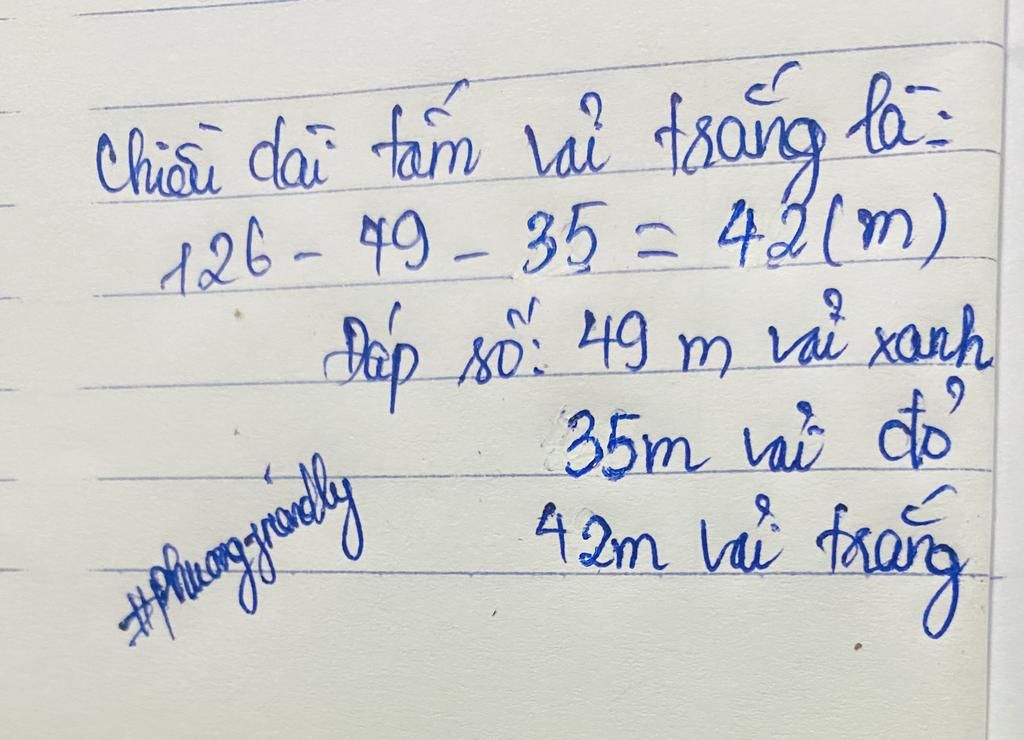 Chiều dài tấm vải trắng là:
126 - 49 - 35 = 42 (m)
Đáp số: 49 m vải xanh
35m vải đỏ
42m vải trắng